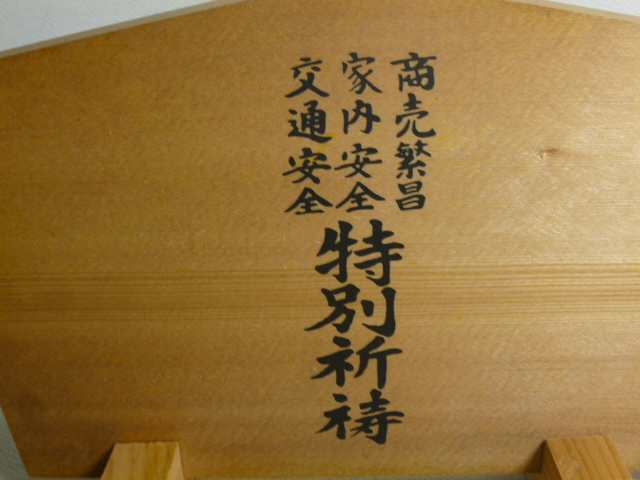 商売繁昌
家内安全
交通安全
特別祈祷